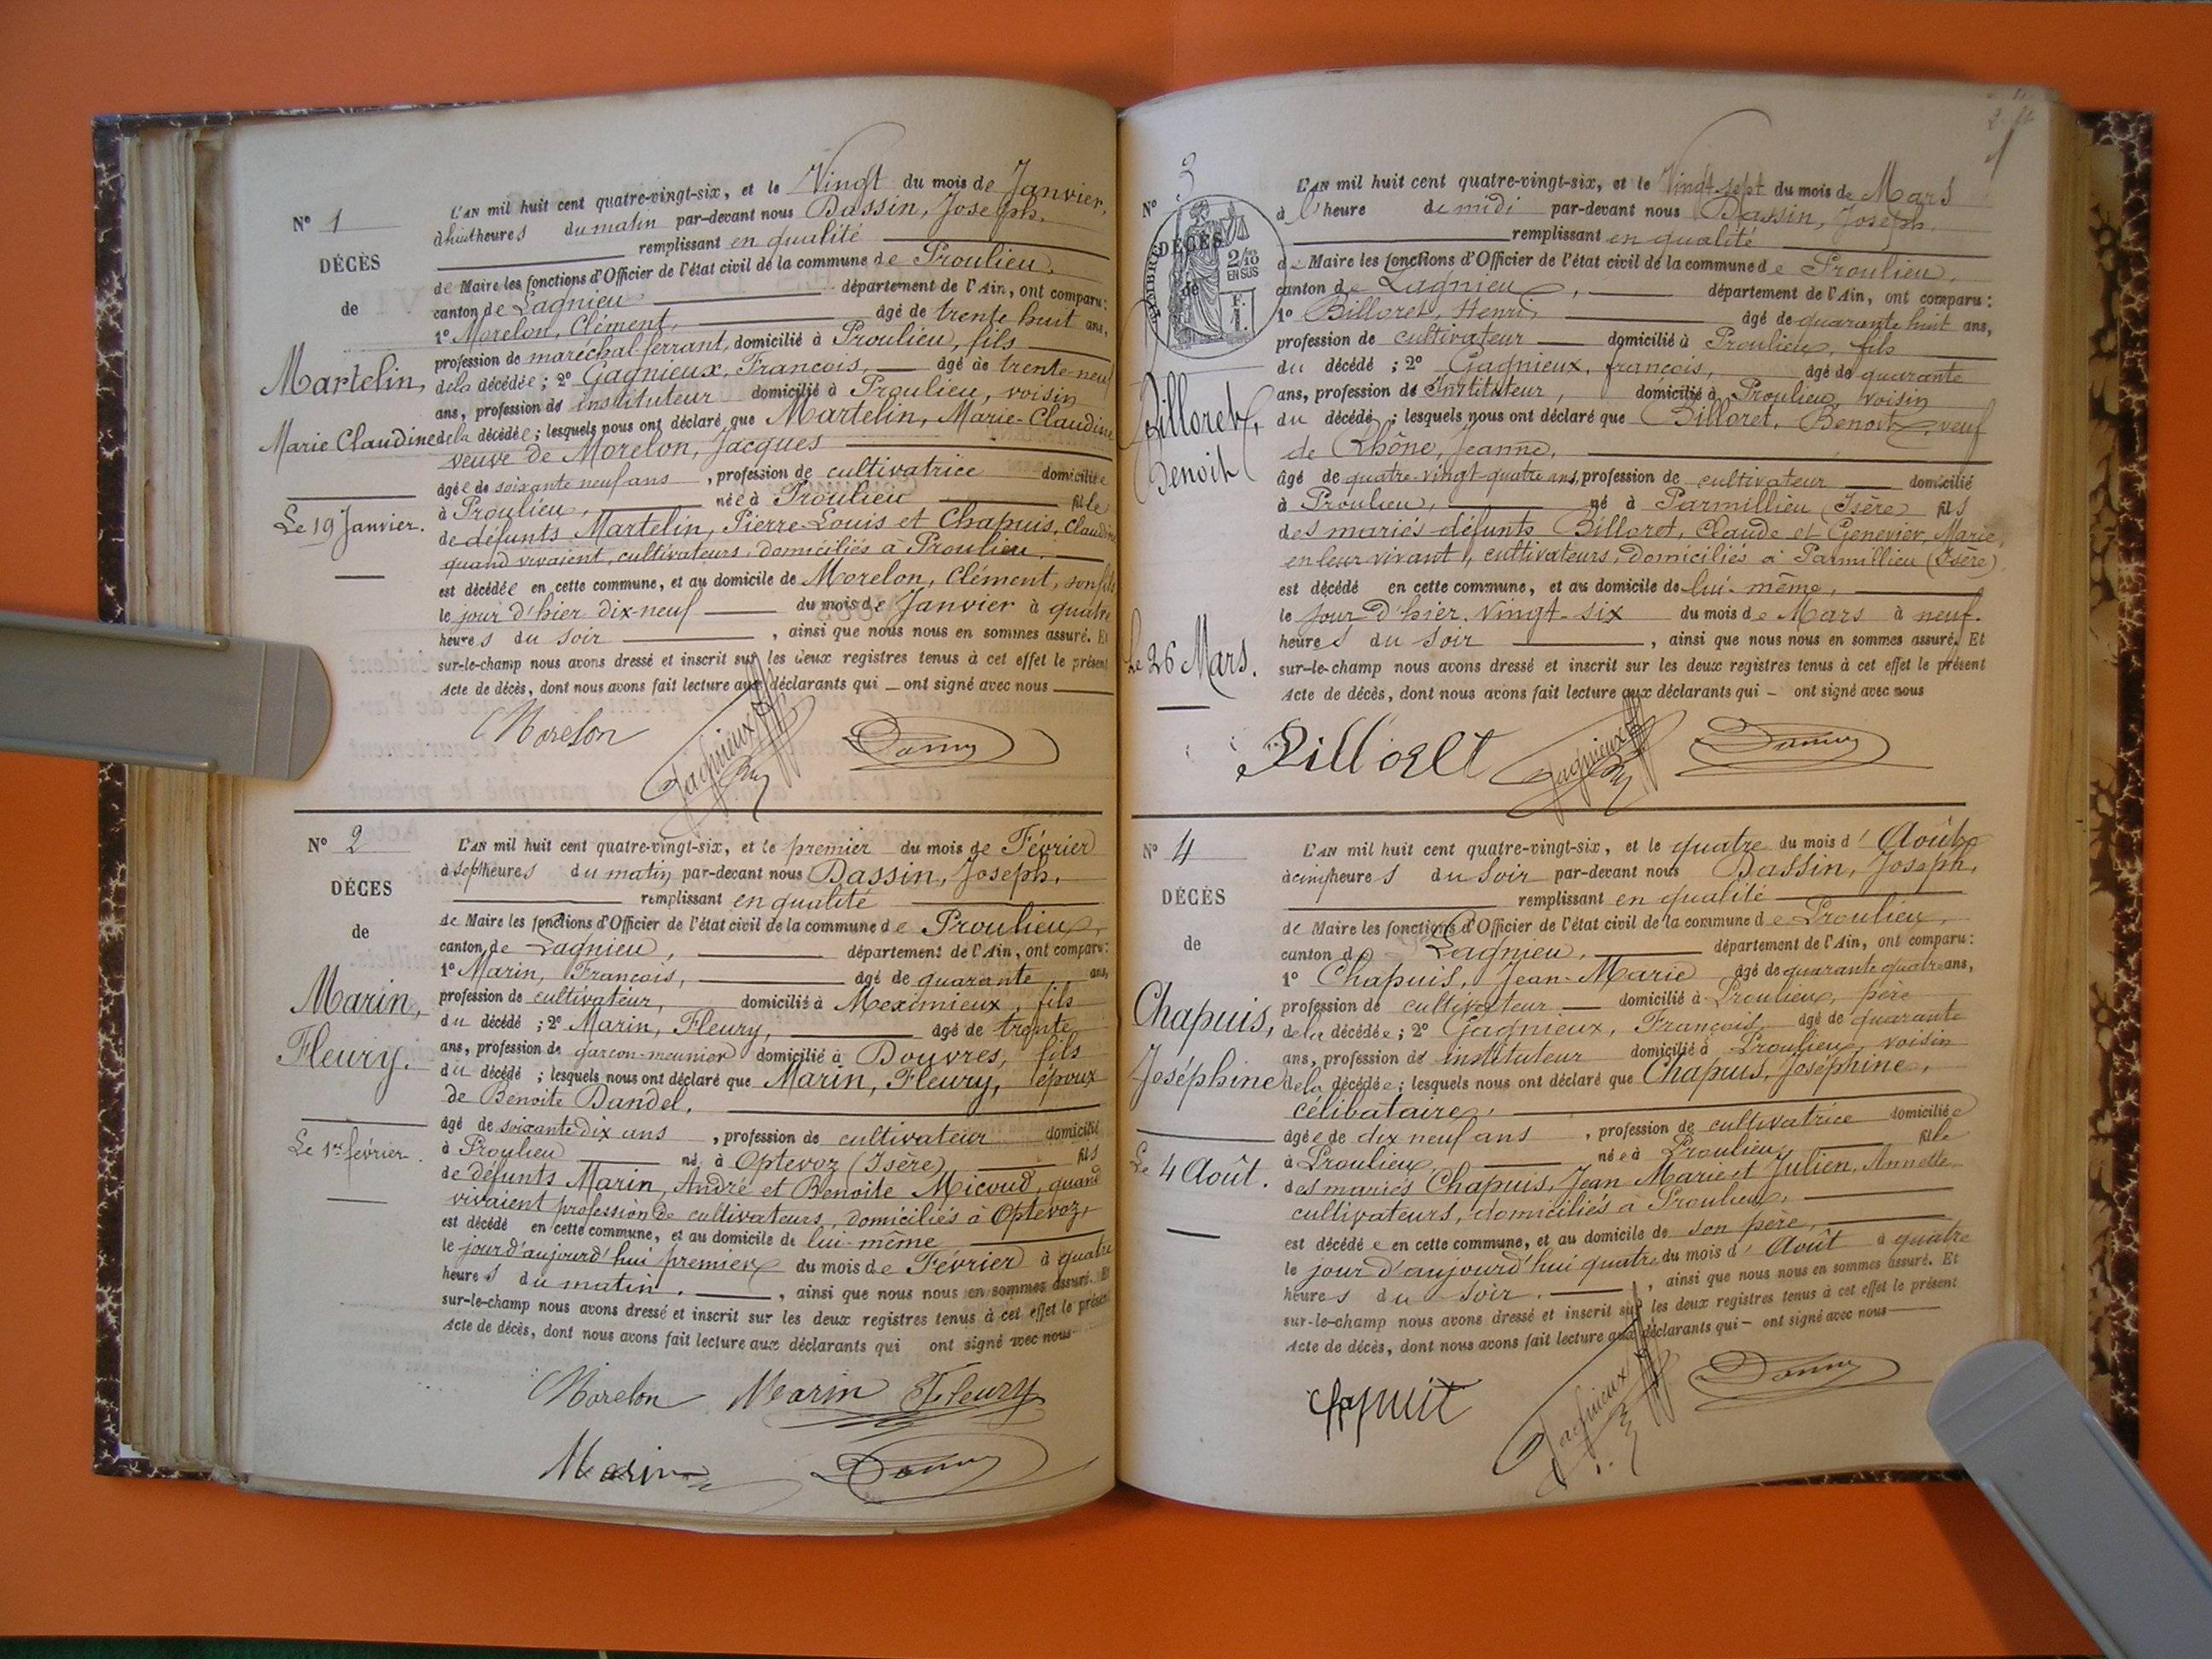 N° 1
DÉCÈS
de
Martelin,
Marie Claudine
Le 19 Janvier.
L'AN mil huit cent quatre-vingt-six, et le Vingt du mois de Janvier,
à huit heures du matin par-devant nous Dassin, Joseph,
remplissant en qualité
de Maire les fonctions d'Officier de l'état civil de la commune de Proulieu,
canton de Lagnieu département de l'Ain, ont comparu:
1° Morelon, Clément, âgé de trente huit ans,
profession de maréchal-ferrant, domicilié à Proulieu, fils
de la décédée; 2° Gagnieux, François, âgé de trente-neuf
ans, profession de instituteur domicilié à Proulieu, voisin
de la décédée; lesquels nous ont déclaré que Martelin, Marie-Claudine
veuve de Morelon, Jacques
âgée de soixante neuf ans, profession de cultivatrice domiciliée
à Proulieu, née à Proulieu fille
de défunts Martelin, Pierre-Louis et Chapuis, Claudine
quand vivaient, cultivateurs, domiciliés à Proulieu.
est décédée en cette commune, et au domicile de Morelon, Clément, son fils
le jour d'hier dix-neuf du mois de Janvier à quatre
heures du soir, ainsi que nous nous en sommes assuré. Et
sur-le-champ nous avons dressé et inscrit sur les deux registres tenus à cet effet le présent
Acte de décès, dont nous avons fait lecture aux déclarants qui ont signé avec nous
Morelon Gagnieux
N° 2
DÉCES
de
Marin,
Fleury.
Le 1er février.
L'AN mil huit cent quatre-vingt-six, et le premier du mois de Février
à sept heures du matin par-devant nous Dassin, Joseph,
remplissant en qualité
de Maire les fonctions d'Officier de l'état civil de la commune de Proulieu,
canton de Lagnieu, département de l'Ain, ont comparu:
1° Marin, François, âgé de quarante ans,
profession de cultivateur, domicilié à Meximieux, fils
du décédé; 2° Marin, Fleury, âgé de trente
ans, profession de garçon-meunier domicilié à Douvres, fils
du décédé; lesquels nous ont déclaré que Marin, Fleury, époux
de Benoite Dandel.
âgé de soixante dix ans, profession de cultivateur domicilié
à Proulieu né à Optevoz (Isère) fils
de défunts Marin, André et Benoite Micoud, quand
vivaient profession de cultivateurs, domiciliés à Optevoz,
est décédé en cette commune, et au domicile de lui-même
le jour d'aujourd'hui premier du mois de Février à quatre
heures du matin., ainsi que nous nous en sommes assuré. Et
sur-le-champ nous avons dressé et inscrit sur les deux registres tenus à cet effet le présent
Acte de décès, dont nous avons fait lecture aux déclarants qui ont signé avec nous
Morelon Marin Fleury
Marin
N° 3
DÉCÈS
de
TIMBRE
2/10
EN SUS
Billoret,
Benoit
Le 26 Mars.
L'AN mil huit cent quatre-vingt-six, et le Vingt-sept du mois de Mars
à l'heure de midi par-devant nous Dassin, Joseph,
remplissant en qualité
de Maire les fonctions d'Officier de l'état civil de la commune de Proulieu,
canton de Lagnieu, département de l'Ain, ont comparu:
1° Billoret, Henri, âgé de quarante huit ans,
profession de cultivateur domicilié à Proulieu, fils
du décédé; 2° Gagnieux, françois, âgé de quarante
ans, profession de Instituteur, domicilié à Proulieu, voisin
du décédé; lesquels nous ont déclaré que Billoret, Benoit, veuf
de Rhône, Jeanne,
âgé de quatre-vingt-quatre ans, profession de cultivateur domicilié
à Proulieu, né à Parmillieu (Isère) fils
des mariés défunts Billoret, Claude et Genevier, Marie,
en leur vivant, cultivateurs, domiciliés à Parmillieu (Isère)
est décédé en cette commune, et au domicile de lui-même,
le jour d'hier, Vingt-six du mois de Mars à neuf
heures du soir, ainsi que nous nous en sommes assuré. Et
sur-le-champ nous avons dressé et inscrit sur les deux registres tenus à cet effet le présent
Acte de décès, dont nous avons fait lecture aux déclarants qui ont signé avec nous
Billoret Gagnieux
N° 4
DÉCÈS
de
Chapuis,
Joséphine
Le 4 Août.
L'AN mil huit cent quatre-vingt-six, et le quatre du mois d'Août
à cinq heures du soir par-devant nous Dassin, Joseph,
remplissant en qualité
de Maire les fonctions d'Officier de l'état civil de la commune de Proulieu,
canton de Lagnieu, département de l'Ain, ont comparu:
1° Chapuis, Jean-Marie âgé de quarante quatre ans,
profession de cultivateur domicilié à Proulieu, père
de la décédée; 2° Gagnieux, François, âgé de quarante
ans, profession de instituteur domicilié à Proulieu, voisin
de la décédée; lesquels nous ont déclaré que Chapuis, Joséphine,
célibataire,
âgée de dix neuf ans, profession de cultivatrice domiciliée
à Proulieu, née à Proulieu, fille
des mariés Chapuis, Jean Marie et Julien, Annette
cultivateurs, domiciliés à Proulieu,
est décédée en cette commune, et au domicile de son père,
le jour d'aujourd'hui quatre du mois d'Août à quatre
heures du soir., ainsi que nous nous en sommes assuré. Et
sur-le-champ nous avons dressé et inscrit sur les deux registres tenus à cet effet le présent
Acte de décès, dont nous avons fait lecture aux déclarants qui ont signé avec nous
Chapuit Gagnieux